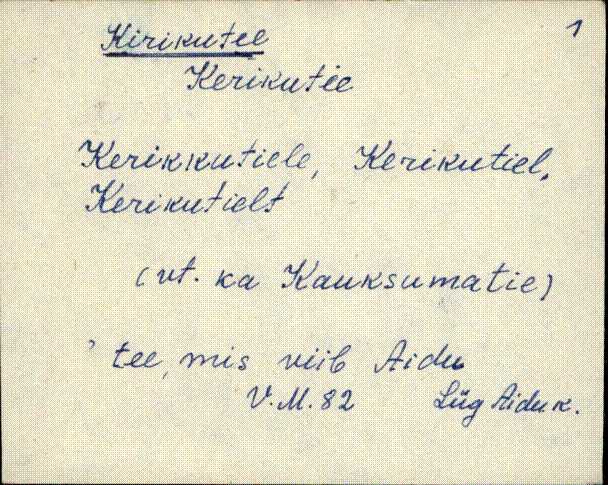 Kirikutee 1
Kerikutie
Kerikkutiele, Kerikutiel,
Kerikutielt
(vt. ka Kauksumatie)
' tee, mis viib Aidu
V.M. 82 Lüg Aidu k.